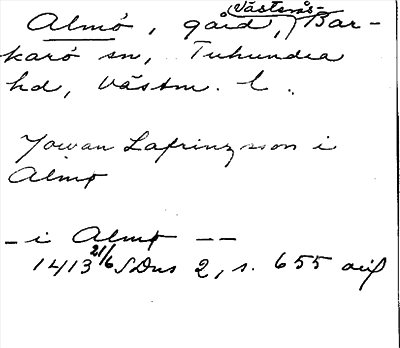 Almö, gård, Västerås-Bar-
karö sn, Tuhundra
hd, Västm. l.
Jowan Lafrinzsson i
Almø
- i Almø --
1413 21/6 SDns 2, s. 655 avs